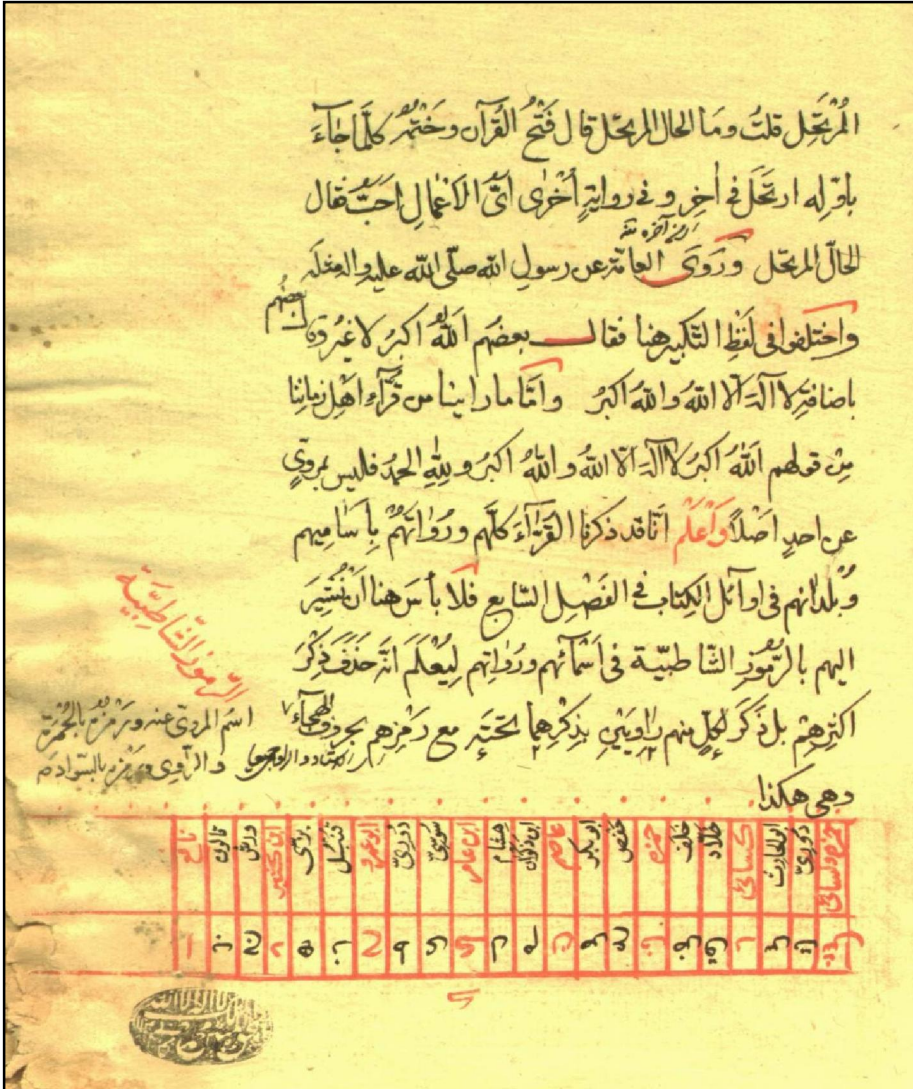 المرتحل قلتُ وما الحال المرتحل قال فَتْحُ القُرآن وخَتْمُه كلّما جَاءَ
باوّله ارتَحَل في آخره و في روايةٍ أخرى أىّ الأعْمالِ احَبُّ فقال
الحالّ المرتحل ورَوَى العامّة عن رسول الله صلّى الله عليه واله مثله
واختلفوا في لَفْظِ التكبير هنا فقال بعضهم اللّٰهُ اكبرُ لا غيرُ وقال بعضهم
باضافة لا آله الّا اللهُ والله اكبرُ وامّا ما راينا من قُرّاء اهل زماننا
مِن قولهم اَللّٰهُ اكبرُ لا آله الّا اللهُ و اللهُ اكبرُ و لِلّٰهِ الحمدُ فليس بمروىٍّ
عن احدٍ اَصْلاً وَاعْلَم انّا قد ذكرنا القُرّاءَ كلّهم ورُوَاتَهُمْ بِأسَاميهم
وبُلْدانهم في اوائل الكتاب في الفَصْل السّابع فلا بأسَ هنا اَن نُشِيرَ
اليهم بالرّموز الشّاطبيّة في اسْمائهم ورُواتهم لِيُعْلَمَ انّه حَذَفَ ذِكْرَ
اكثرِهِمْ بل ذَكَرَ لِكلٍّ منهم رَاوِيَيْنِ بِذِكْرِهما تحته مع رَمْزِهم بحروف الهجاء
وهى هكذا
الرّموز الشّاطبيّة
اسم المروىّ عنه ورَمْزه بالحُمْرة
والرّاوى ورَمْزه بالسّواد
نافع
قالون
ورش
ابن كثير
بزّى
قنبل
ابو عمرو
دورىّ
سوسىّ
ابن عامر
هشام
ابن ذكوان
عاصم
ابو بكر
حفص
حمزه
خلف
خلّاد
كسائى
ابو الحارث
دورىّ
حمزه وكسائى